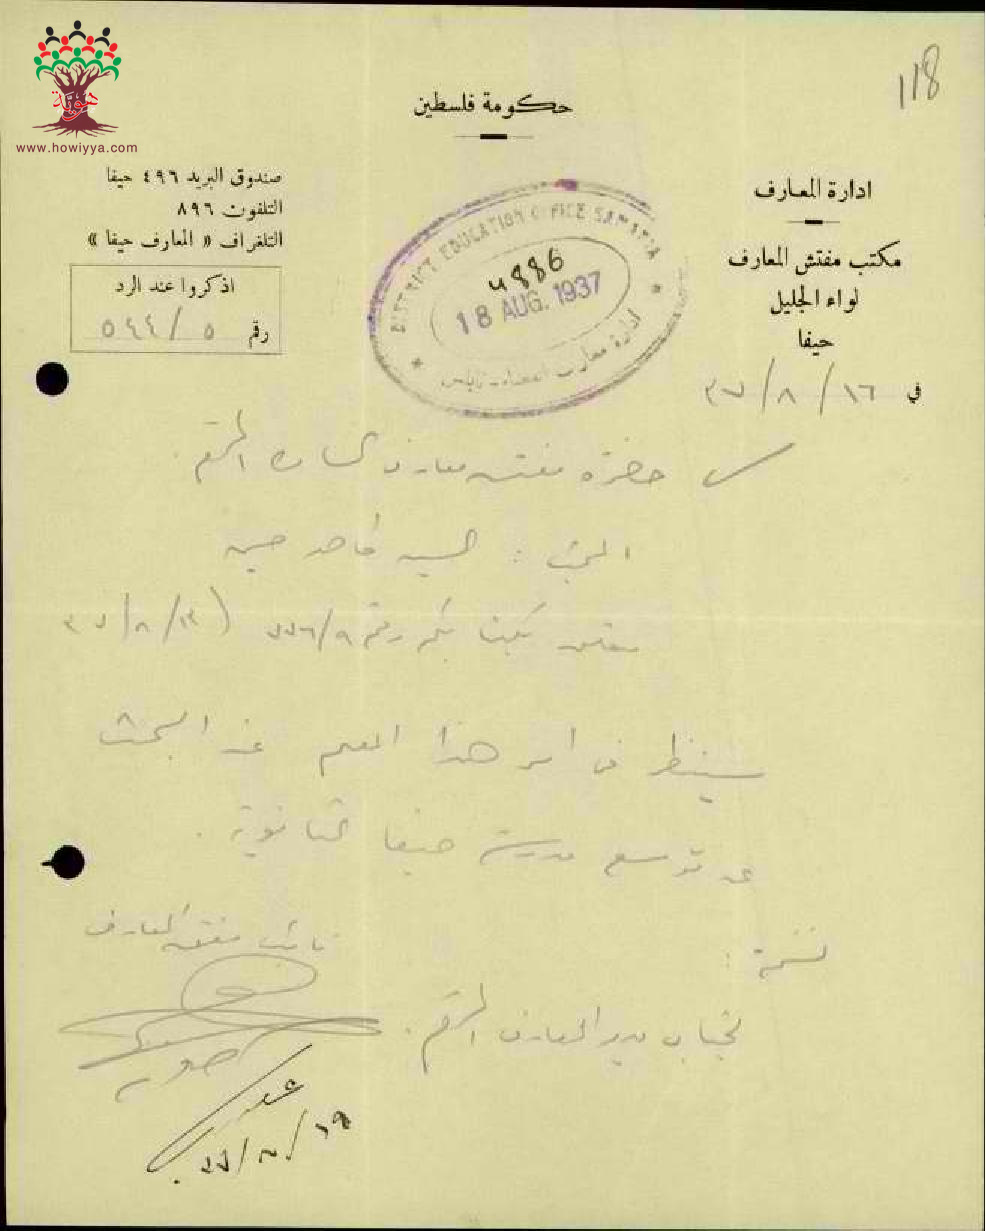 118
هوية
www.howiyya.com
حكومة فلسطين
ادارة المعارف
مكتب مفتش المعارف
لواء الجليل
حيفا
في ١٦/٨/٣٧
صندوق البريد ٤٩٦ حيفا
التلفون ٨٩٦
التلغراف « المعارف حيفا »
اذكروا عند الرد
رقم ٥/٥٤٤
DISTRICT EDUCATION OFFICE SAMARIA
4886
18 AUG. 1937
ادارة معارف
حضرة مفتش معارف السامرة المحترم.
البحث : السيد حسين
رقم ٧٧٦/٩ ٨/٣٧
سينظر في امر هذا المعلم عند البحث
عن توسيع مدرسة حيفا الثانوية.
نائب مفتش المعارف
نسخة :
لجناب مدير المعارف المحترم.